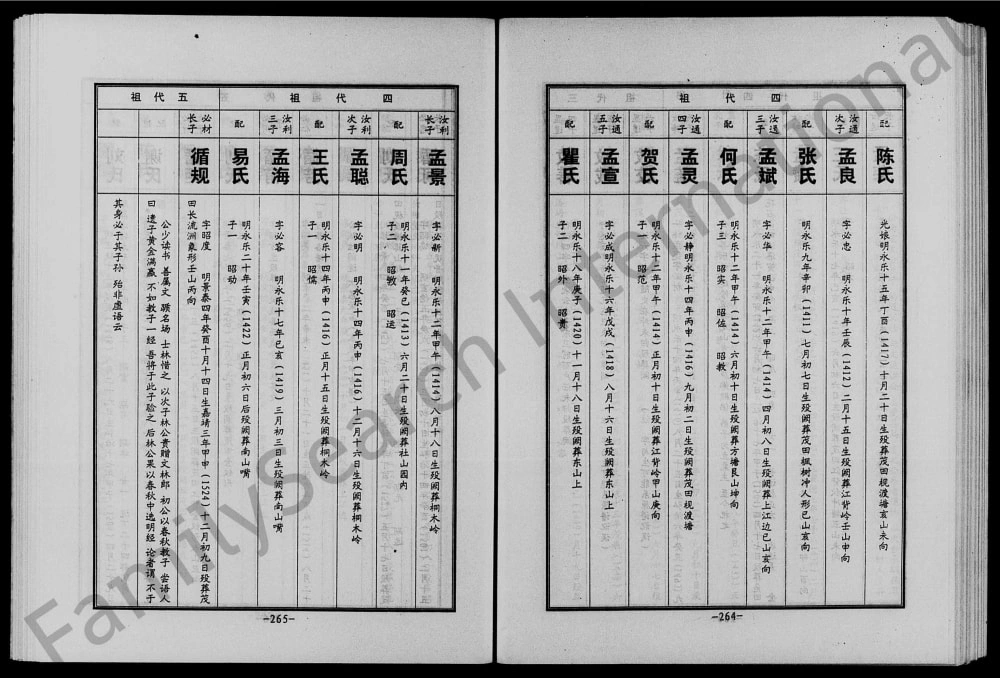 四代祖
配
陈氏
光娘明永乐十五年丁酉（1417）十月二十日生殁葬茂田枧渡塘亥山未向
汝通次子
孟良
字必忠 明永乐十年壬辰（1412）二月十五日生殁阙葬江背岭壬山申向
配
张氏
明永乐九年辛卯（1411）七月初七日生殁阙葬茂田枫树冲人形巳山亥向
汝通三子
孟斌
字必华 明永乐十二年甲午（1414）四月初八日生殁阙葬上江边巳山亥向
配
何氏
明永乐十二年甲午（1414）六月初十日生殁阙葬方塘艮山坤向
子三 昭实 昭佐 昭教
汝通四子
孟灵
字必静明永乐十四年丙申（1416）九月初二日生殁阙葬茂田枧渡塘
配
贺氏
明永乐十二年甲午（1414）正月初十日生殁阙葬江背岭甲山庚向
子一 昭范
汝通五子
孟宣
字必成明永乐十六年戊戌（1418）八月十六日生殁阙葬东山上
配
瞿氏
明永乐十八年庚子（1420）十一月十八日生殁阙葬东山上
子二 昭外 昭贵
-264-
四代祖
汝利长子
孟景
字必新 明永乐十二年甲午（1414）八月十八日生殁阙葬桐木岭
配
周氏
明永乐十一年癸巳（1413）六月二十日生殁阙葬社山园内
子二 昭敏 昭运
汝利次子
孟聪
字必明 明永乐十四年丙申（1416）十二月十六日生殁阙葬桐木岭
配
王氏
明永乐十四年丙申（1416）正月十五日生殁阙葬桐木岭
子一 昭儒
汝利三子
孟海
字必容 明永乐十七年己亥（1419）三月初三日生殁阙葬尚山嘴
配
易氏
明永乐二十年壬寅（1422）正月初六日后殁阙葬尚山嘴
子一 昭动
五代祖
必材长子
循规
字昭度 明景泰四年癸酉十月十四日生嘉靖三年甲申（1524）十二月初九日殁葬茂
田长流洲象形壬山丙向
公少读书 善属文 踬名场 士林惜之 以次子林公贵赠文林郎 初公以春秋教子 尝语人
曰 遗子黄金满籝 不如教子一经 吾将于此子验之 后林公果以春秋中选明经 论者谓 不于
其身必于其子孙 殆非虚语云
-265-
FamilySearch International